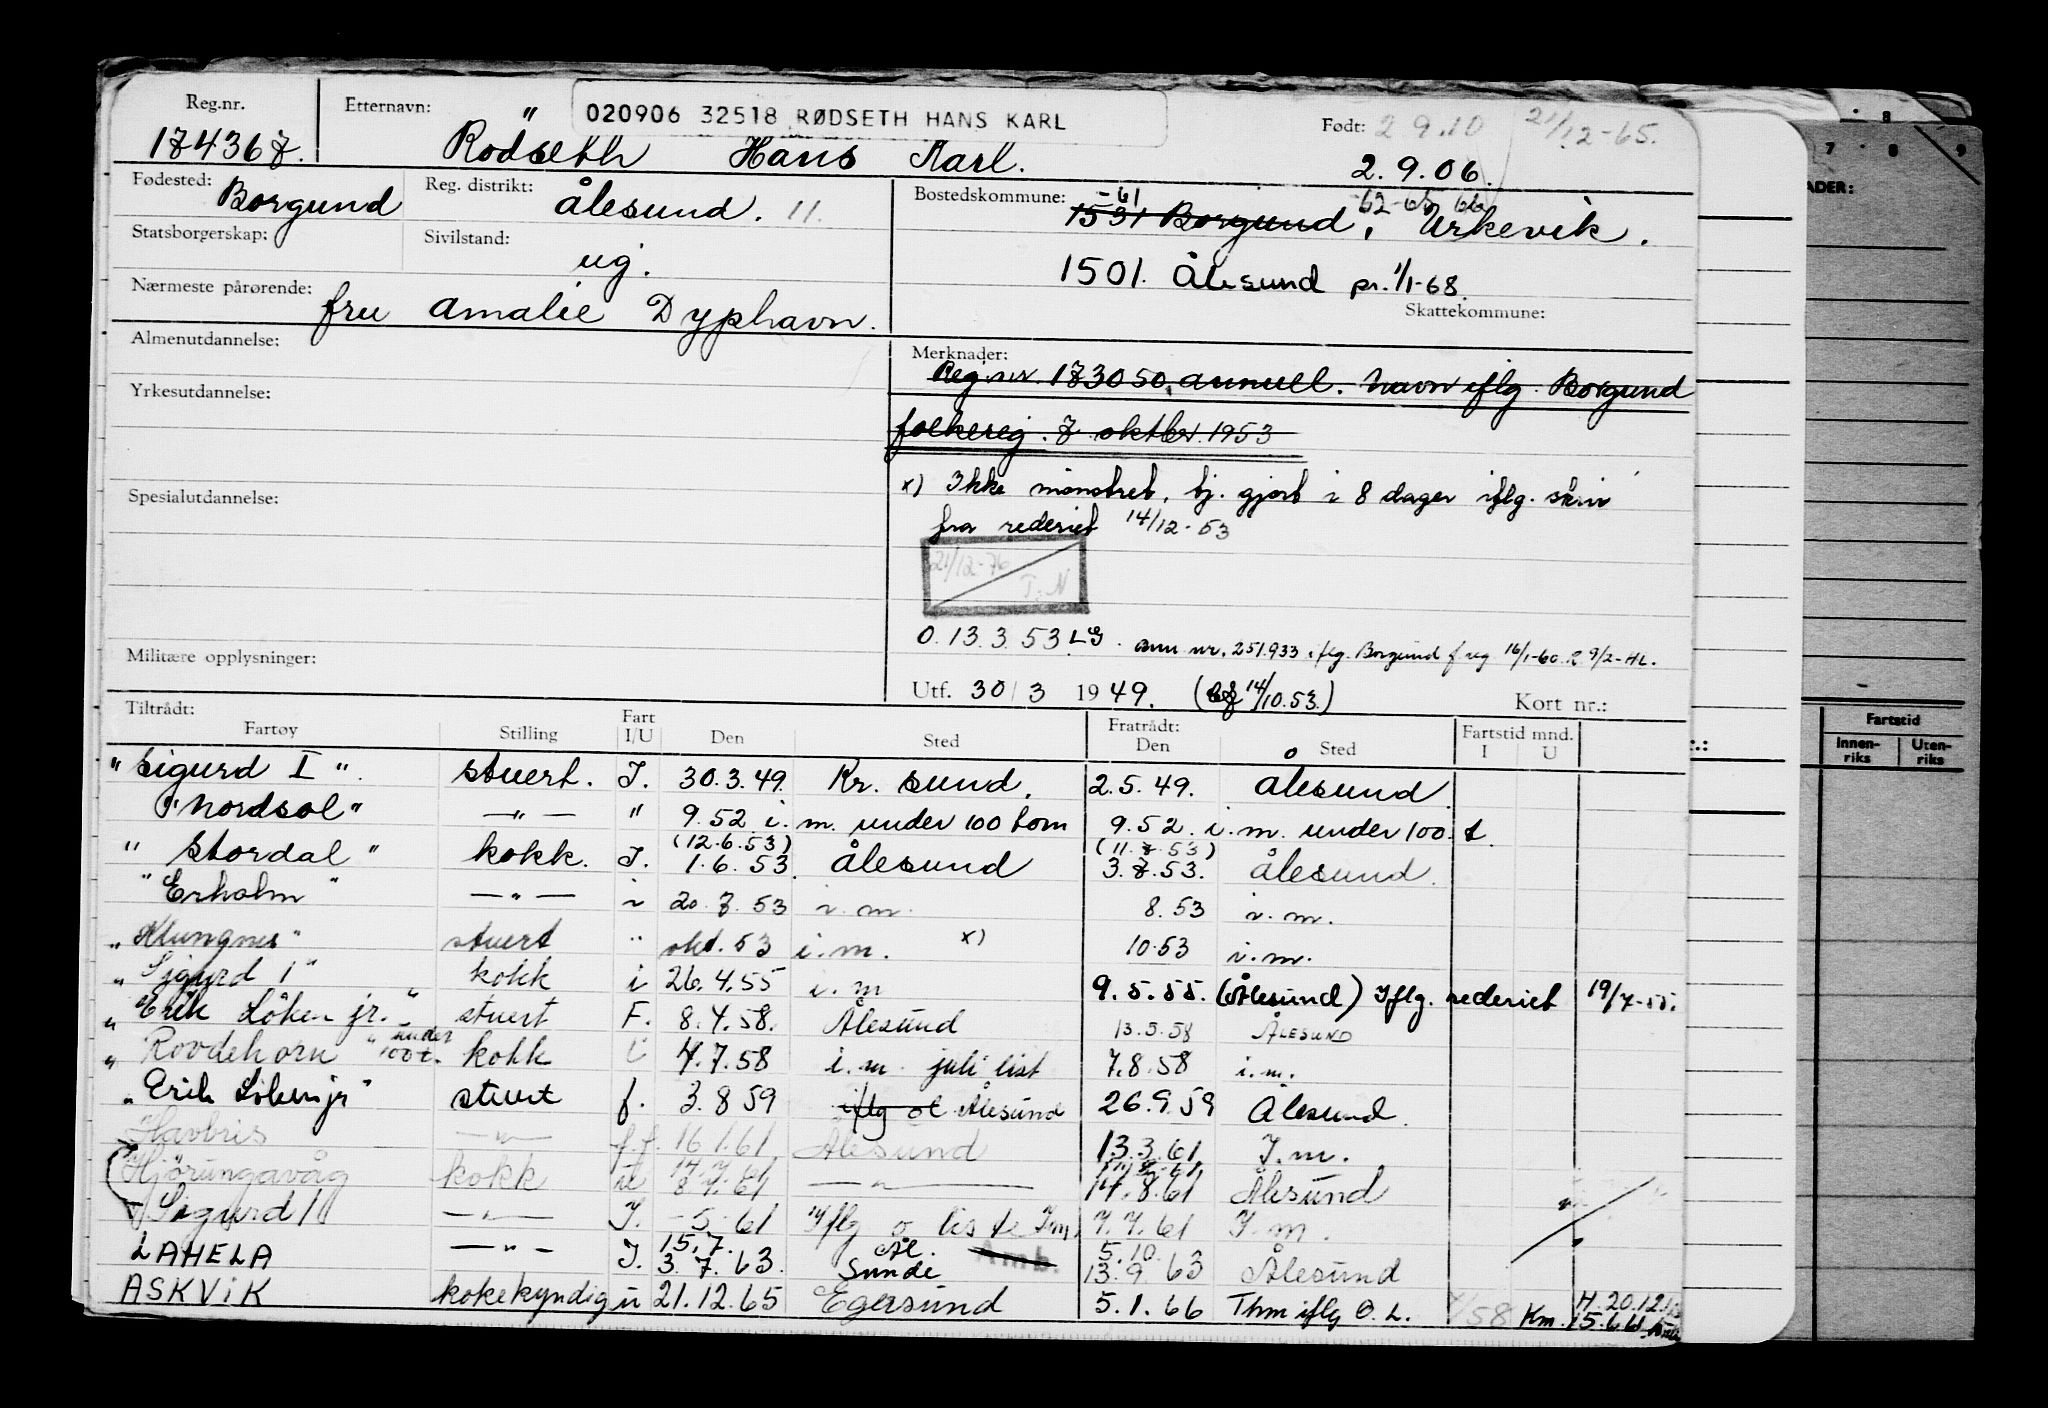 Reg.nr. Etternavn: 020906 32518 RØDSETH HANS KARL Født: 2.9.10 21/12-65.
174367. Rödseth Hans Karl. 2.9.06.
Fødested: Borgund Reg. distrikt: Ålesund. 11. Bostedskommune: -61 -62-65 66
1531 Borgund, Urkevik.
Statsborgerskap: Sivilstand: ug.
1501. Ålesund pr. 1/1-68.
Nærmeste pårørende: fru Amalie Dyphavn. Skattekommune:
Almenutdannelse: Merknader:
Reg.nr. 173050. annull. Navn iflg. Borgund
Yrkesutdannelse:
folkereg. 7 oktbr. 1953
x) Ikke mönstret, tj. gjort i 8 dager iflg. skriv
Spesialutdannelse:
fra rederiet 14/12-53
21/12-76
T.N
O. 13.3.53 LG. ann nr. 251933 iflg. Borgund f reg 16/1-60. 9/2-HL.
Militære opplysninger:
Utf. 30/3 1949. (14/10.53.) Kort nr.:
Tiltrådt: Fratrådt:
Fartøy Stilling Fart I/U Den Sted Den Sted Fartstid mnd. I U
"Sigurd I". stuert. I. 30.3.49. Kr. sund. 2.5.49. Ålesund.
"Nordsol" —"— " 9.52 i. m. under 100 tonn 9.52. i. m. under 100. t.
(12.6.53) (11.7.53)
"Stordal" kokk. I. 1.6.53. Ålesund 3.7.53. Ålesund.
"Erholm" —"— i 20.7.53 i.m. 8.53 i.m.
"Klungnes" stuert " okt. 53 i.m. x) 10.53 i.m.
"Sigurd 1" kokk i 26.4.55 i.m 9.5.55. (Ålesund) Iflg. rederiet 19/7-55.
"Erik Löken jr." stuert F. 8.4.58. Ålesund 13.5.58 ÅLESUND
"Rovdehorn" under 100 t. kokk i 4.7.58 i.m. juli list 7.8.58 i.m.
"Erik Löken jr" stuert f. 3.8.59 iflg ol Ålesund 26.9.59 Ålesund.
"Havbris —"— f.f. 16.1.61. Ålesund 13.3.61 I.m.
14.7.61
Hjörungavåg kokk u 8.7.61 —"— 17.8.61 Ålesund
Sigurd 1 —"— I. -5-61 Iflg o liste I.m. 7.7.61 I.m.
15.7. Ål. Amb. 5.10.
LAHELA —"— I. 3.7.63. Sunde 13.9.63 Ålesund
ASKVIK kokekyndig u 21.12.65 Egersund 5.1.66 Thm iflg O.L. 4/58 Km. H. 20.12.
15.6.61
7 8 9
ADER:
Fartstid
Innen-
riks Uten-
riks